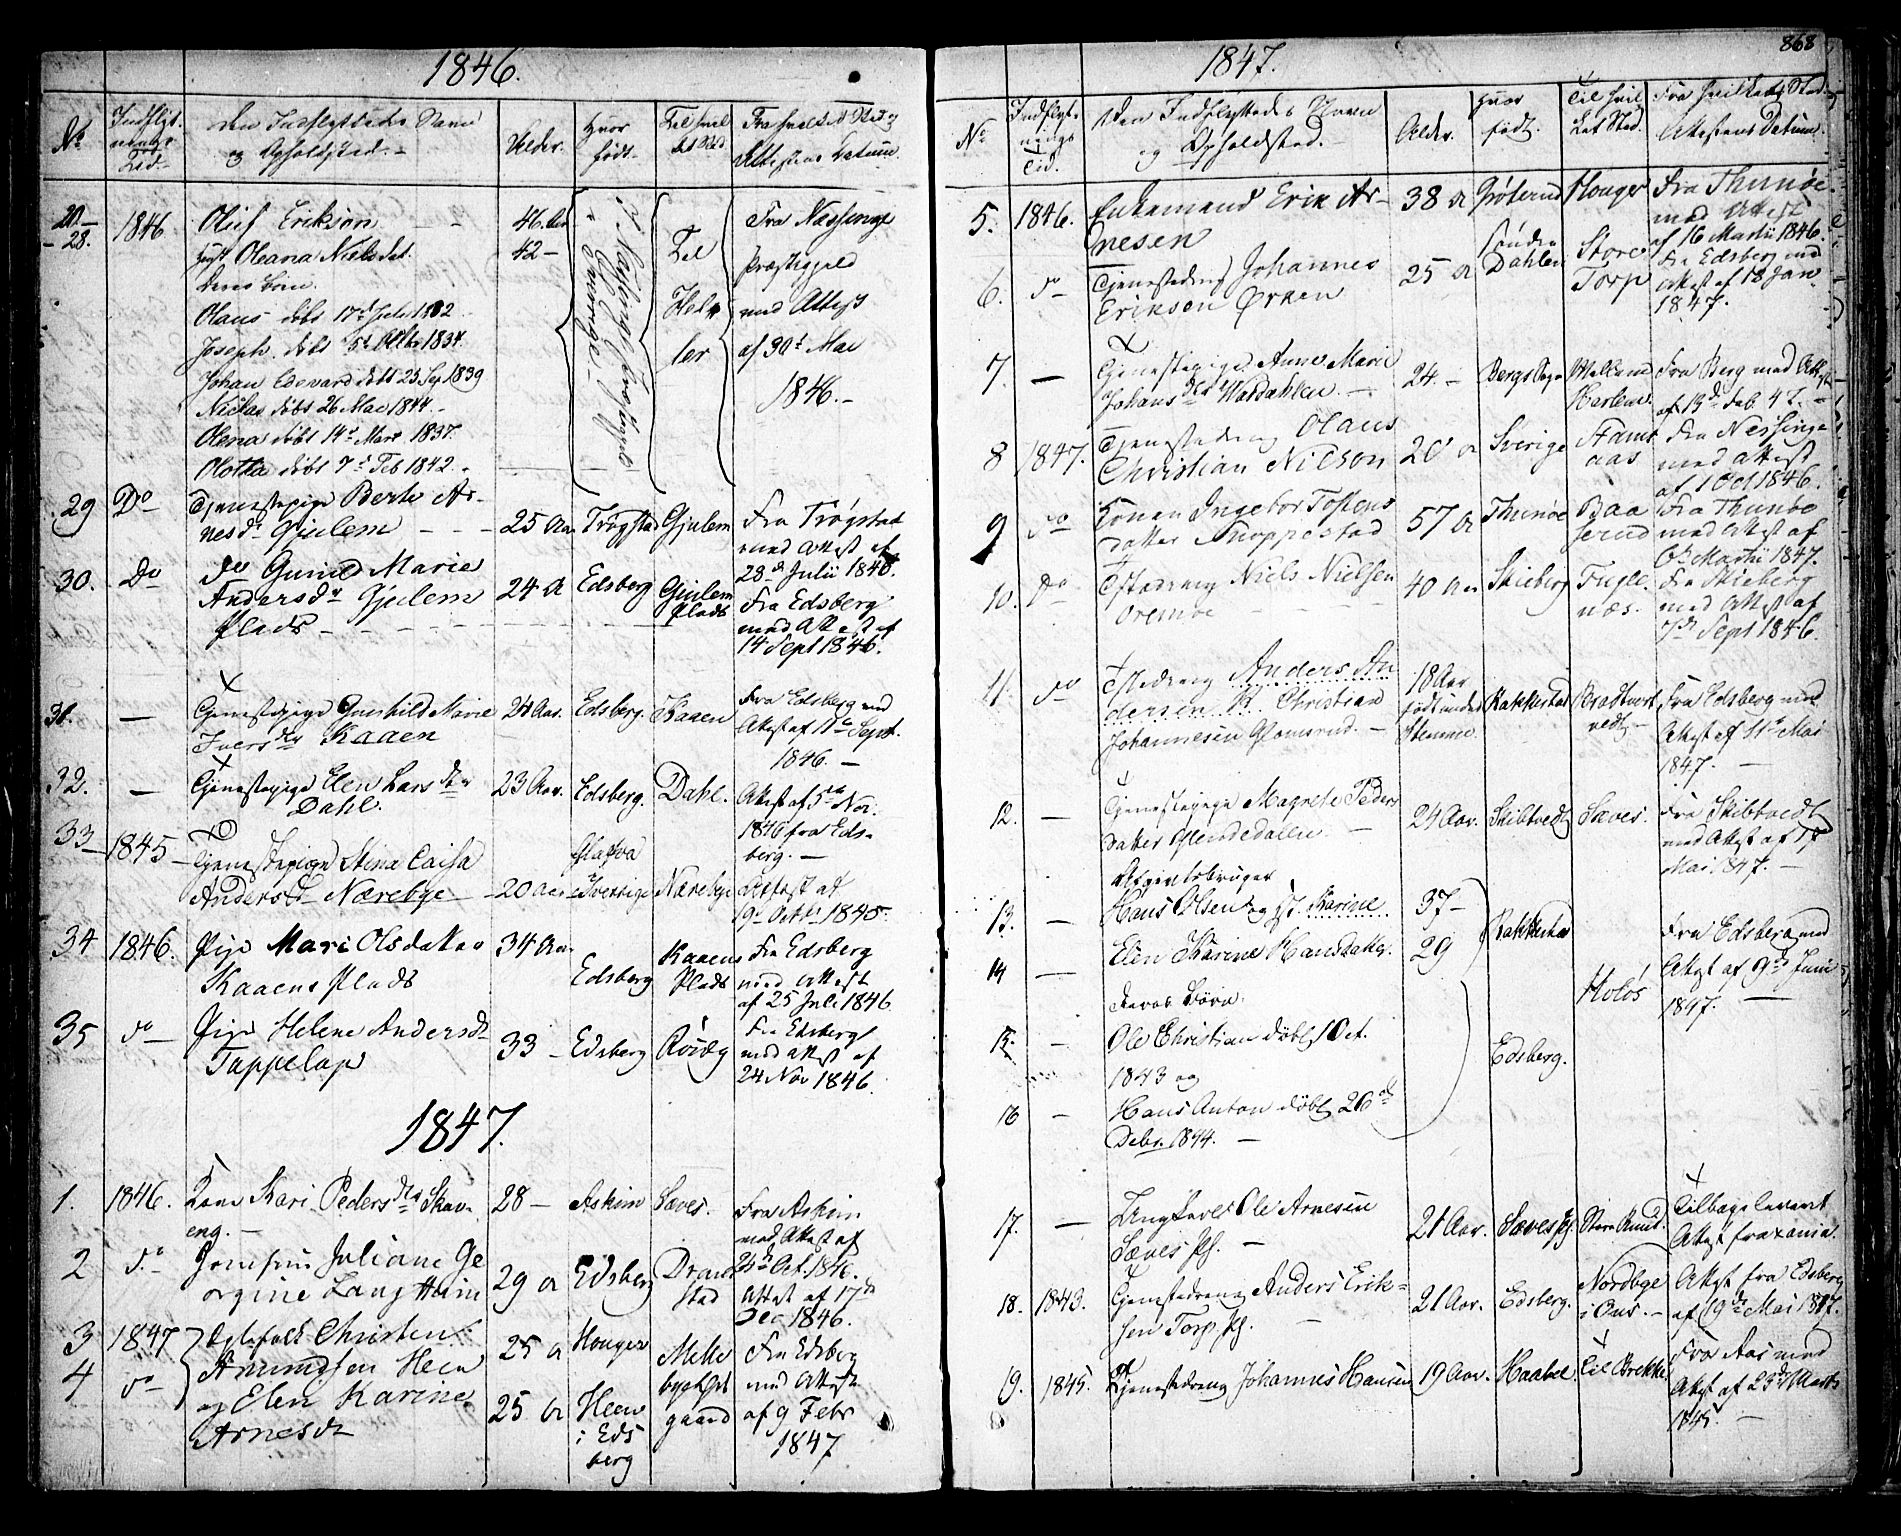 1846.
No
Indflyt-
nings
Tid
Den Indflyttedes Navn
og Opholdsted.-
Alder.
Hvor
født.
Til hvil
ket Sted
Fra hvilket Sted og
Attestens Datum.
20-
-28.
1846
Oluf Erikson
Hust. Oleana Nielsdat.
deres Børn.
Olaus døbt 17d Juli 1832.
Joseph døbt 5d Octbr 1834.
Johan Edevard døbt 23 Sep 1839
Niclas døbt 26 Mai 1844.-
Olena døbt 14d Mart 1837.
Olotta døbt 7d Feb 1842.-
46 Aar
42-
Til
Hel-
ler
Fra Næssinge
Præstegjeld
med Attest
af 30d Mai
1846.-
29 Do Tjenestepige Berte Ar-
nesdr Gjulem - - -
25 Aar Trøgstad Gjulem
Fra Trøgstad
med Attest af
28d Julii 1846.
30. Do do Gunild Marie
Andersdr Gjulem
Plads-
24 A Edsberg Gjulem
Plads
Fra Edsberg
med Attest af
14 Sept 1846.
31. - Tjenestepige Gunhild Marie
Iversdtr Kaaen
24 Aar. Edsberg. Kaaen
Fra Edsberg med
Attest af 11te Sept.
1846.-
32. - Tjenestepige Elen Larsdter
Dahl.
23 Aar. Edsberg. Dahl.
Attest af 5te Nov.
1846 fra Eds-
berg.-
33- 1845- Tjenestepige Stina Caisa
Andersd Nærebye
20 Aar i Sverrige Nærebye
Attest af
19de Octbr 1845.
34 1846. Pige Mari Olsdatter
Kaaens Plads
34 Aar Edsberg Kaaens
Plads
Fra Edsberg
med Attest
af 25 Juli 1846
35 do- Pige Helene Andersd
Tappelap
33- Edsberg
Fra Edsberg
med attest af
24 Nov 1846.
1847.
1. 1846. Kone Kari Pedersdtr Skav-
eng.-
28- Askim Sæves.
Fra Askim
med Attest af
24d Oct. 1846.
2 do Jomfru Juliane Ge
orgine Langheim
29 A Edsberg Drau
stad
Attest af 17de
Dec 1846.
3 1847
4 do
Ægtefolk Christen
Amundsen Heen
og Elen Karine
Arnesdr
25 A Houger
25 A Heen
i Eds
berg
Melle
byeplds
gaard
Fra Edsberg
med Attest
af 9 Febr
1847
1847.
868
No
Indflyt-
nings
Tid.
Den Indflyttedes Navn
og Opholdsted.-
Alder.
Hvor
født.
Til hvil
ket Sted.
Fra hvilket Sted
Attestens Datum.
5. 1846. Enkemand Erik Ar-
nesen
38 A Grøterud Houger
Fra Thunøe
med Attest
af 16 Martii 1846.
6. do Tjenestedreng Johannes
Eriksen Ørken
25 A Søndre
Dahlen
Store
Torp
Fra Edsberg med
Attest af 18 Jan
1847.
7. - Tjenestepige Anne Marie
Johansdtr Wardahlen.-
24.- Bergs Sogn Mellem
Harlem.
Fra Berg med Attest
af 13d Feb 47.-
8 1847. Tjenestedreng Olaus
Christian Nilson
20 A Sverige Stams
aas
Fra Nessinge
med Attest
af 1 Oct 1846.
9 do Konen Ingebor Tostens
datter Snoppestad
57 A Thunøe Baa
serud
Fra Thunøe
med Attest af
6te Martii 1847.
10. Do Tjstedreng Niels Nielsen
Oremoe
40 Aar Skieberg Fugle
næs.
Fra Skieberg
med Attest af
7de Sept 1846.
11. do Tjstedreng Anders An
dersen
Christian
Johannesen Glomsrud.-
18 Aar
født under
Stemme.
Rakkestad
vedt.-
Fra Edsberg med
Attest af 11te Mai
1847.-
12. - Tjenestepige Magrete Peders
datter Glendedalen.-
24 Aar. Skibtvedt Sæves.
Fra Skibtvedt
med Attest af 17
Mai 1847.-
Afgivtsbruger
13. - Hans Olsen og Hst. Karine 37-
14 - Elen Karine Hansdatter. 29
Rakkestad
Fra Edsberg med
Attest af 9de Juni
1847.-
deres Børn
Holøs
15. - Ole Christian døbt 1 Oct.
1843 og
Edsberg.
16 - Hans Anton døbt 26de
Debr. 1844.-
17. - Ungkarl Ole Arnesen
Sæves Pl.-
21 Aar. Sæves Pl. Store Rud.
Tilbageleveret
Attest fra Xania.
18. 1843. Tjenestedreng Anders Erik-
sen Torp Pl.-
21 Aar. Edsberg. Nordbye
i Ous.-
Attest fra Edsberg
af 19de Mai 1847.
19. 1845. Tjenestedreng Johannes Hansen 19 Aar. Haabel. Til Brekke
Fra Aas med
Attest af 23de Marts
1845.-